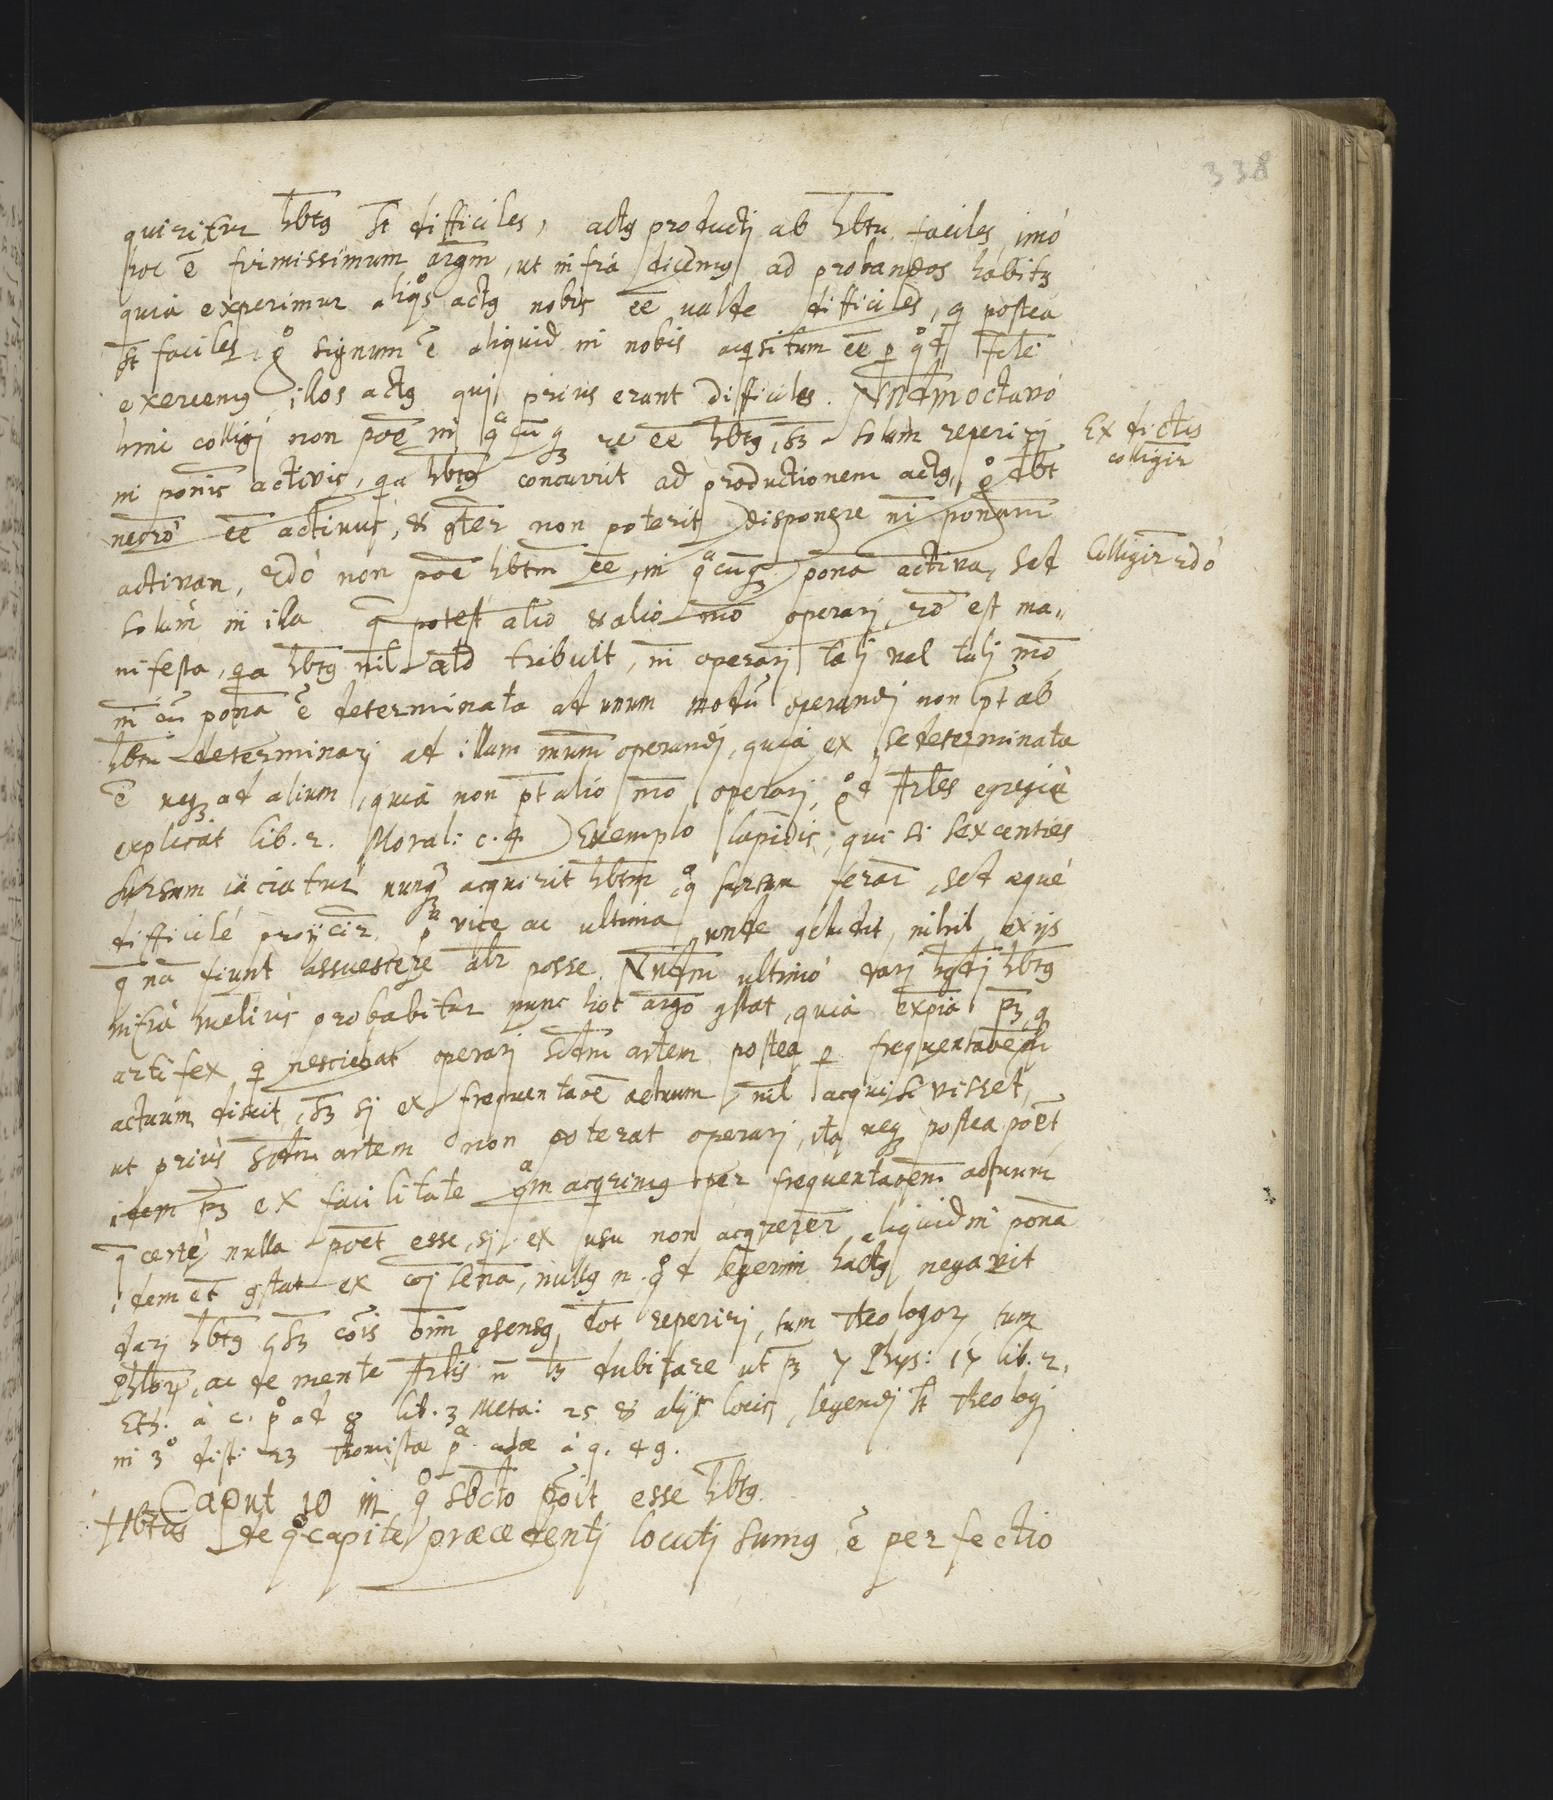 338
quiritur hbtg st difficiles, actg producti ab hbtu faciles, imó
hoc ē firmissimum argm, ut infrà dicemg ad probandos habitg
quia experimur aliqos actg nobis eē ualde difficiles, q postea
st faciles, go signum ē aliquid in nobis acqsitum eē p qod
exercemg illos actg qui prius erant difficiles. Notandm octavó
hinc colligi non poē in qacūqꝫ re eē hbtg, sꝫ solum reperiri
in ponis activis, qa hbtg concurrit ad productionem actg, go dbt
necrió eē activus, & gter non poterit disponere ni ponam
activam, 2dó non poē hbtm eē, in qacūqꝫ pona activa, sed
solùm in illa q potest alio & alio mō operari, rō est ma„
nifesta, qa hbtg nil ald tribuit, ni operari tali vel tali mō
ni cū pona ē determinata ad unum modū operandi non pt ab
hbtu determinari ad illum mum operandi, quià ex se determinata
ē neqꝫ ad alium, quià non pt alió mō operari, qod Artles egregiè
explicat lib. 2. Moral: c. 4 Exemplo lapidis, qui si sexcenties
sursum iaciatur nunqꝫ acquirit hbtm, qo sursum ferar, sed aequè
difficilé proijcir pa vice ac ultima, unde gcludit, nihil ex ijs
q nā fiunt assuescere alr posse. Notandm ultimó dari hgdi hbtg
infrà meliùs probabitur nunc hoc argō gstat, quià expia pꝫ, q
artifex q nesciebat operari scdm artem postea p frequentaōem
actuum discit, sꝫ si ex frequentaōe actuum nil acquisivisset,
ut priùs scdm artem non poterat operari, ita neqꝫ postea poēt
idem pꝫ ex facilitate qam acqrimg per frequentaōem actuum
q certè nulla poēt esse, si ex usu non acqrerēr aliquid ni pona
idem et gstat ex coi senā, nullg n. qod legerim hactg negavit
dari hbtg sꝫ cōis oim gsensg dot reperiri, tum Theologorꝫ tum
Phlorꝫ, ac de mente Artlis n̄ lꝫ dubitare ut pꝫ 7 Phys: 17 lib. 2.
Eth. à c. po ad 8 lib. 3 Meta: 25 & alijs locis, legendi st Theologi
ni 3o dist: 23 Thomistæ pa 2dæ à q. 49.
Caput 10 in qo sbcto poit esse hbtg.
Hbtus de qo capite præcedenti locuti sumg ē perfectio
Ex dictis
colligir
Colligir 2dó